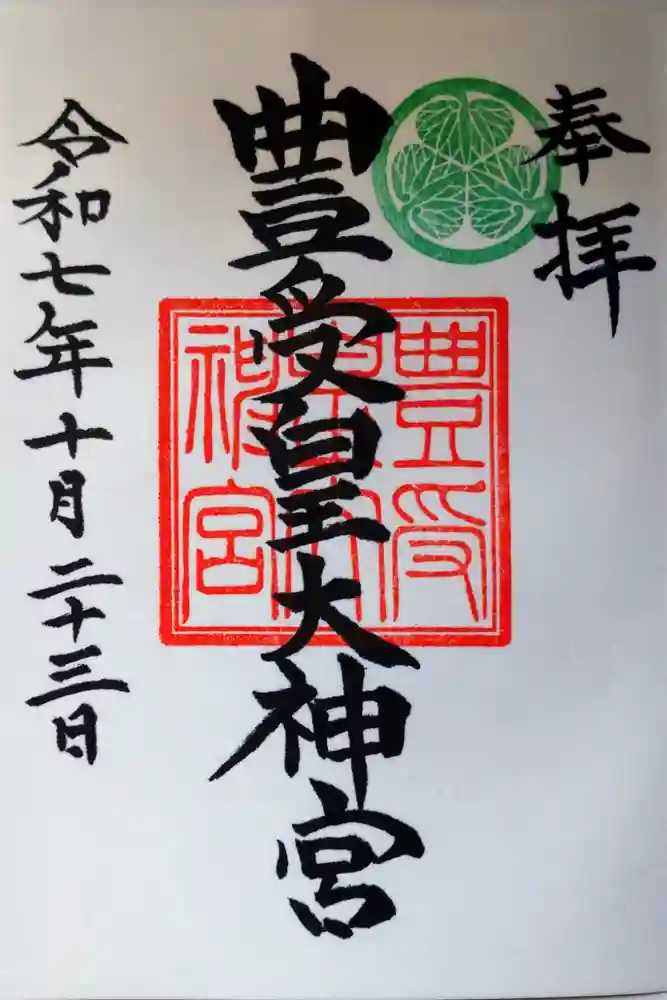 奉拝
豊受皇大神宮
豊受
皇大
神宮
令和七年十月二十三日